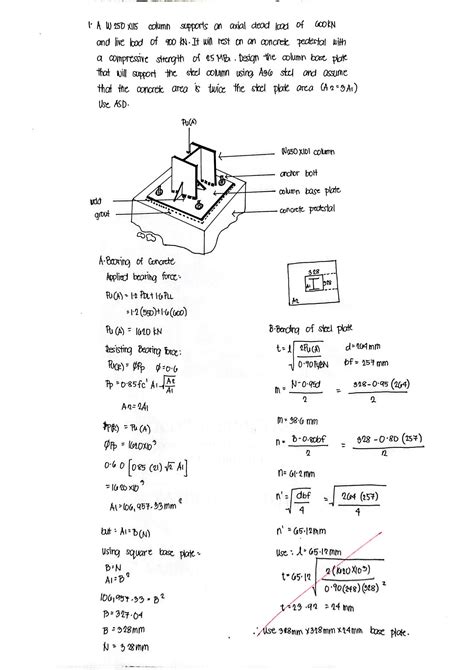 1. A W 250 X115 column supports an axial dead load of 600 KN
and live load of 900 KN. It will rest on an concrete pedestal with
a compressive strength of 25 MPa. Design the column base plate
that will support the steel column using A36 steel and assume
that the concrete area is twice the steel plate area (A2=3A1)
Use ASD.
Pu(A)
W250X101 column
anchor bolt
column base plate
concrete pedestal
weld
grout
A. Bearing of Concrete
Applied bearing force:
Pu(A) = 1.2 PDL + 1.6 PLL
= 1.2 (550) + 1.6 (600)
Pu (A) = 1620 KN
Resisting Bearing force:
Pu(R) = ØPp Ø=0.6
Pp = 0.85 fc' A1 √A2/A1
A2 = 2A1
ØP(R) = Pu (A)
ØPp = 1620X10³
0.6 0 [0.85 (21) √2 A1]
= 1620 X10³
A1 = 106,957.33 mm²
but: A1 = B(N)
Using square base plate:
B=N
A1 = B²
106,957.33 = B²
B = 327.04
B = 328mm
N = 328mm
328
A1
328
A2
B. Bending of steel plate
t = l √2Pu(A)/0.90FyBN
d = 264 mm
bf = 257 mm
m = N-0.95d/2 = 328-0.95 (264)/2
m = 38.6 mm
n = B-0.80bf/2 = 328-0.80 (257)/2
n = 61.2 mm
n' = √dbf/4 = √264 (257)/4
n' = 65.12 mm
Use: l = 65.12 mm
t = 65.12 √2(1620X10³)/0.90(248)(328)²
t = 23.92 = 24 mm
∴ Use 328mm X 328mm X 24mm base plate.